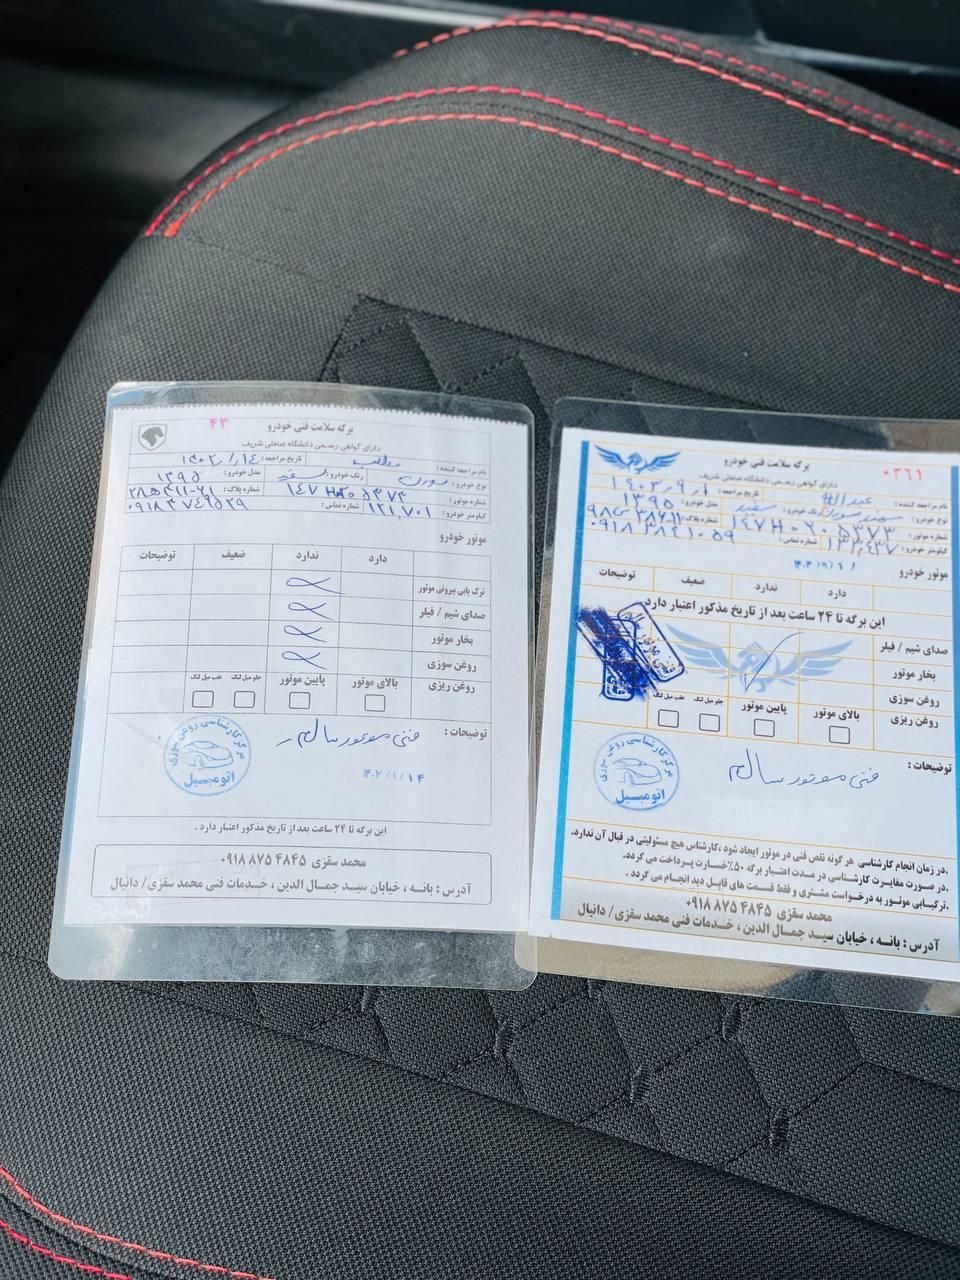 ۴۳
برگه سلامت فنی خودرو
دارای گواهی رسمی دانشگاه صنعتی شریف
نام مراجعه کننده : مطلب تاریخ مراجعه : ۱۴۰۲/۱/۱۴
نوع خودرو : سورن رنگ خودرو : سفید مدل خودرو : ۱۳۹۵
شماره موتور : ۱۴۷H۰۲۰۵۳۷۳ شماره پلاک :
کیلومتر خودرو : ۱۲۱,۷۰۱ شماره تماس : ۰۹۱۸۳۷۴۹۵۲۹
موتور خودرو
دارد ندارد ضعیف توضیحات
ترک یابی بیرونی موتور
صدای شیم / فیلر
بخار موتور
روغن سوزی
روغن ریزی بالای موتور پایین موتور جلو میل لنگ عقب میل لنگ
توضیحات : فنی موتور سالم
۱۴۰۲/۱/۱۴
مرکز کارشناسی روغن سوزی
اتومبیل
این برگه تا ۲۴ ساعت بعد از تاریخ مذکور اعتبار دارد .
محمد سقزی ۰۹۱۸ ۸۷۵ ۴۸۴۵
آدرس : بانه ، خیابان سید جمال الدین ، خدمات فنی محمد سقزی/ دانیال
۰۳۶۱
برگه سلامت فنی خودرو
دارای گواهی رسمی دانشگاه صنعتی شریف
نام مراجعه کننده : عبدالله تاریخ مراجعه : ۱۴۰۳/۹/۱
نوع خودرو : سمند سورن رنگ خودرو : سفید مدل خودرو : ۱۳۹۵
شماره موتور : ۱۴۷H۰۲۰۵۳۷۳ شماره پلاک :
کیلومتر خودرو : ۱۳۱,۴۳۷ شماره تماس : ۰۹۱۸۱۲۸۴۱۰۵۹
موتور خودرو ۱۴۰۳/۹/۱
دارد ندارد ضعیف توضیحات
این برگه تا ۲۴ ساعت بعد از تاریخ مذکور اعتبار دارد.
صدای شیم / فیلر
بخار موتور
روغن سوزی
روغن ریزی بالای موتور پایین موتور جلو میل لنگ عقب میل لنگ
توضیحات : فنی موتور سالم
مرکز کارشناسی روغن سوزی
اتومبیل
.در زمان انجام کارشناسی هر گونه نقص فنی در موتور ایجاد شود ،کارشناس هیچ مسئولیتی در قبال آن ندارد.
.در صورت مغایرت کارشناسی در مدت اعتبار برگه ۵۰٪خسارت پرداخت می گردد.
.ترکیابی موتور به درخواست مشتری و فقط قسمت های قابل دید انجام می گردد .
محمد سقزی ۰۹۱۸ ۸۷۵ ۴۸۴۵
آدرس : بانه ، خیابان سید جمال الدین ، خدمات فنی محمد سقزی/ دانیال